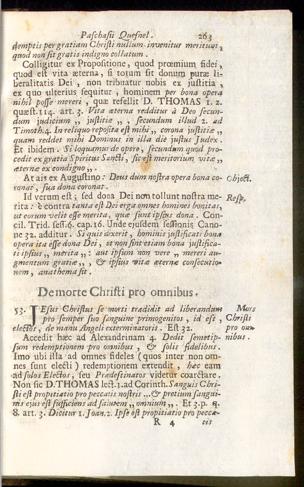 Paschasii Quesnel. 263
demptis per gratiam Christi nullum invenitur meritum,
quod non sit gratis indigno collatum.
Colligitur ex Propositione, quod præmium fidei,
quod est vita æterna, si totum sit donum puræ li-
beralitatis Dei, non tribuatur nobis ex justitia,
ex quo ulterius sequitur, hominem per bona opera
nihil posse mereri, quæ refellit D. THOMAS 1. 2.
quæst. 114. art. 3. Vita æterna redditur à Deo secun-
dum judicium „ justitiæ „, secundum illud 2. ad
Timoth. 4. In reliquo reposita est mihi „ corona justitiæ „
quam reddet mihi Dominus in illa die justus Judex.
Et ibidem. Si loquamur de opere, secundum quod pro-
cedit ex gratia Spiritus Sancti, sic est meritorium vitæ „
æternæ ex condigno „.
At ait ex Augustino: Deus dum nostra opera bona co- Object.
ronat, sua dona coronat.
Id verum est; sed dona Dei non tollunt nostra me- Resp.
rita: è contra tanta est Dei erga omnes homines bonitas,
ut eorum velit esse merita, quæ sunt ipsius dona. Con-
cil. Trid. sess. 6. cap. 16. Unde ejusdem sessionis Cano-
ne 32. additur. Si quis dixerit, hominis justificati bona
opera ita esse dona Dei, ut non sint etiam bona justifica-
ti ipsius „ merita „: aut ipsum non vere „ mereri au-
gmentum gratiæ „, & ipsius vitæ æternæ consecutio-
nem, anathema sit.
De morte Christi pro omnibus.
53. JEsus Christus se morti tradidit ad liberandum Mors
pro semper suo sanguine primogenitos, id est, Christi
electos, de manu Angeli exterminatoris. Est 32. pro om-
Accedit hæc ad Alexandrinam 4. Dedit semetip- nibus.
sum redemptionem pro omnibus, & solis fidelibus.
Imo ubi illa ad omnes fideles (quos inter non om-
nes sunt electi) redemptionem extendit, hæc eam
ad solos Electos, seu Prædestinatos videtur coarctare.
Non sic D. THOMAS lect. 1. ad Corinth. Sanguis Chri-
sti est propitiatio pro peccatis nostris ... & pretium sangui-
nis ejus est sufficiens ad salutem „ omnium „. Et 3. p. q.
8. art. 3. Dicitur 1. Joan. 2. Ipse est propitiatio pro pecca-
R 4 tis